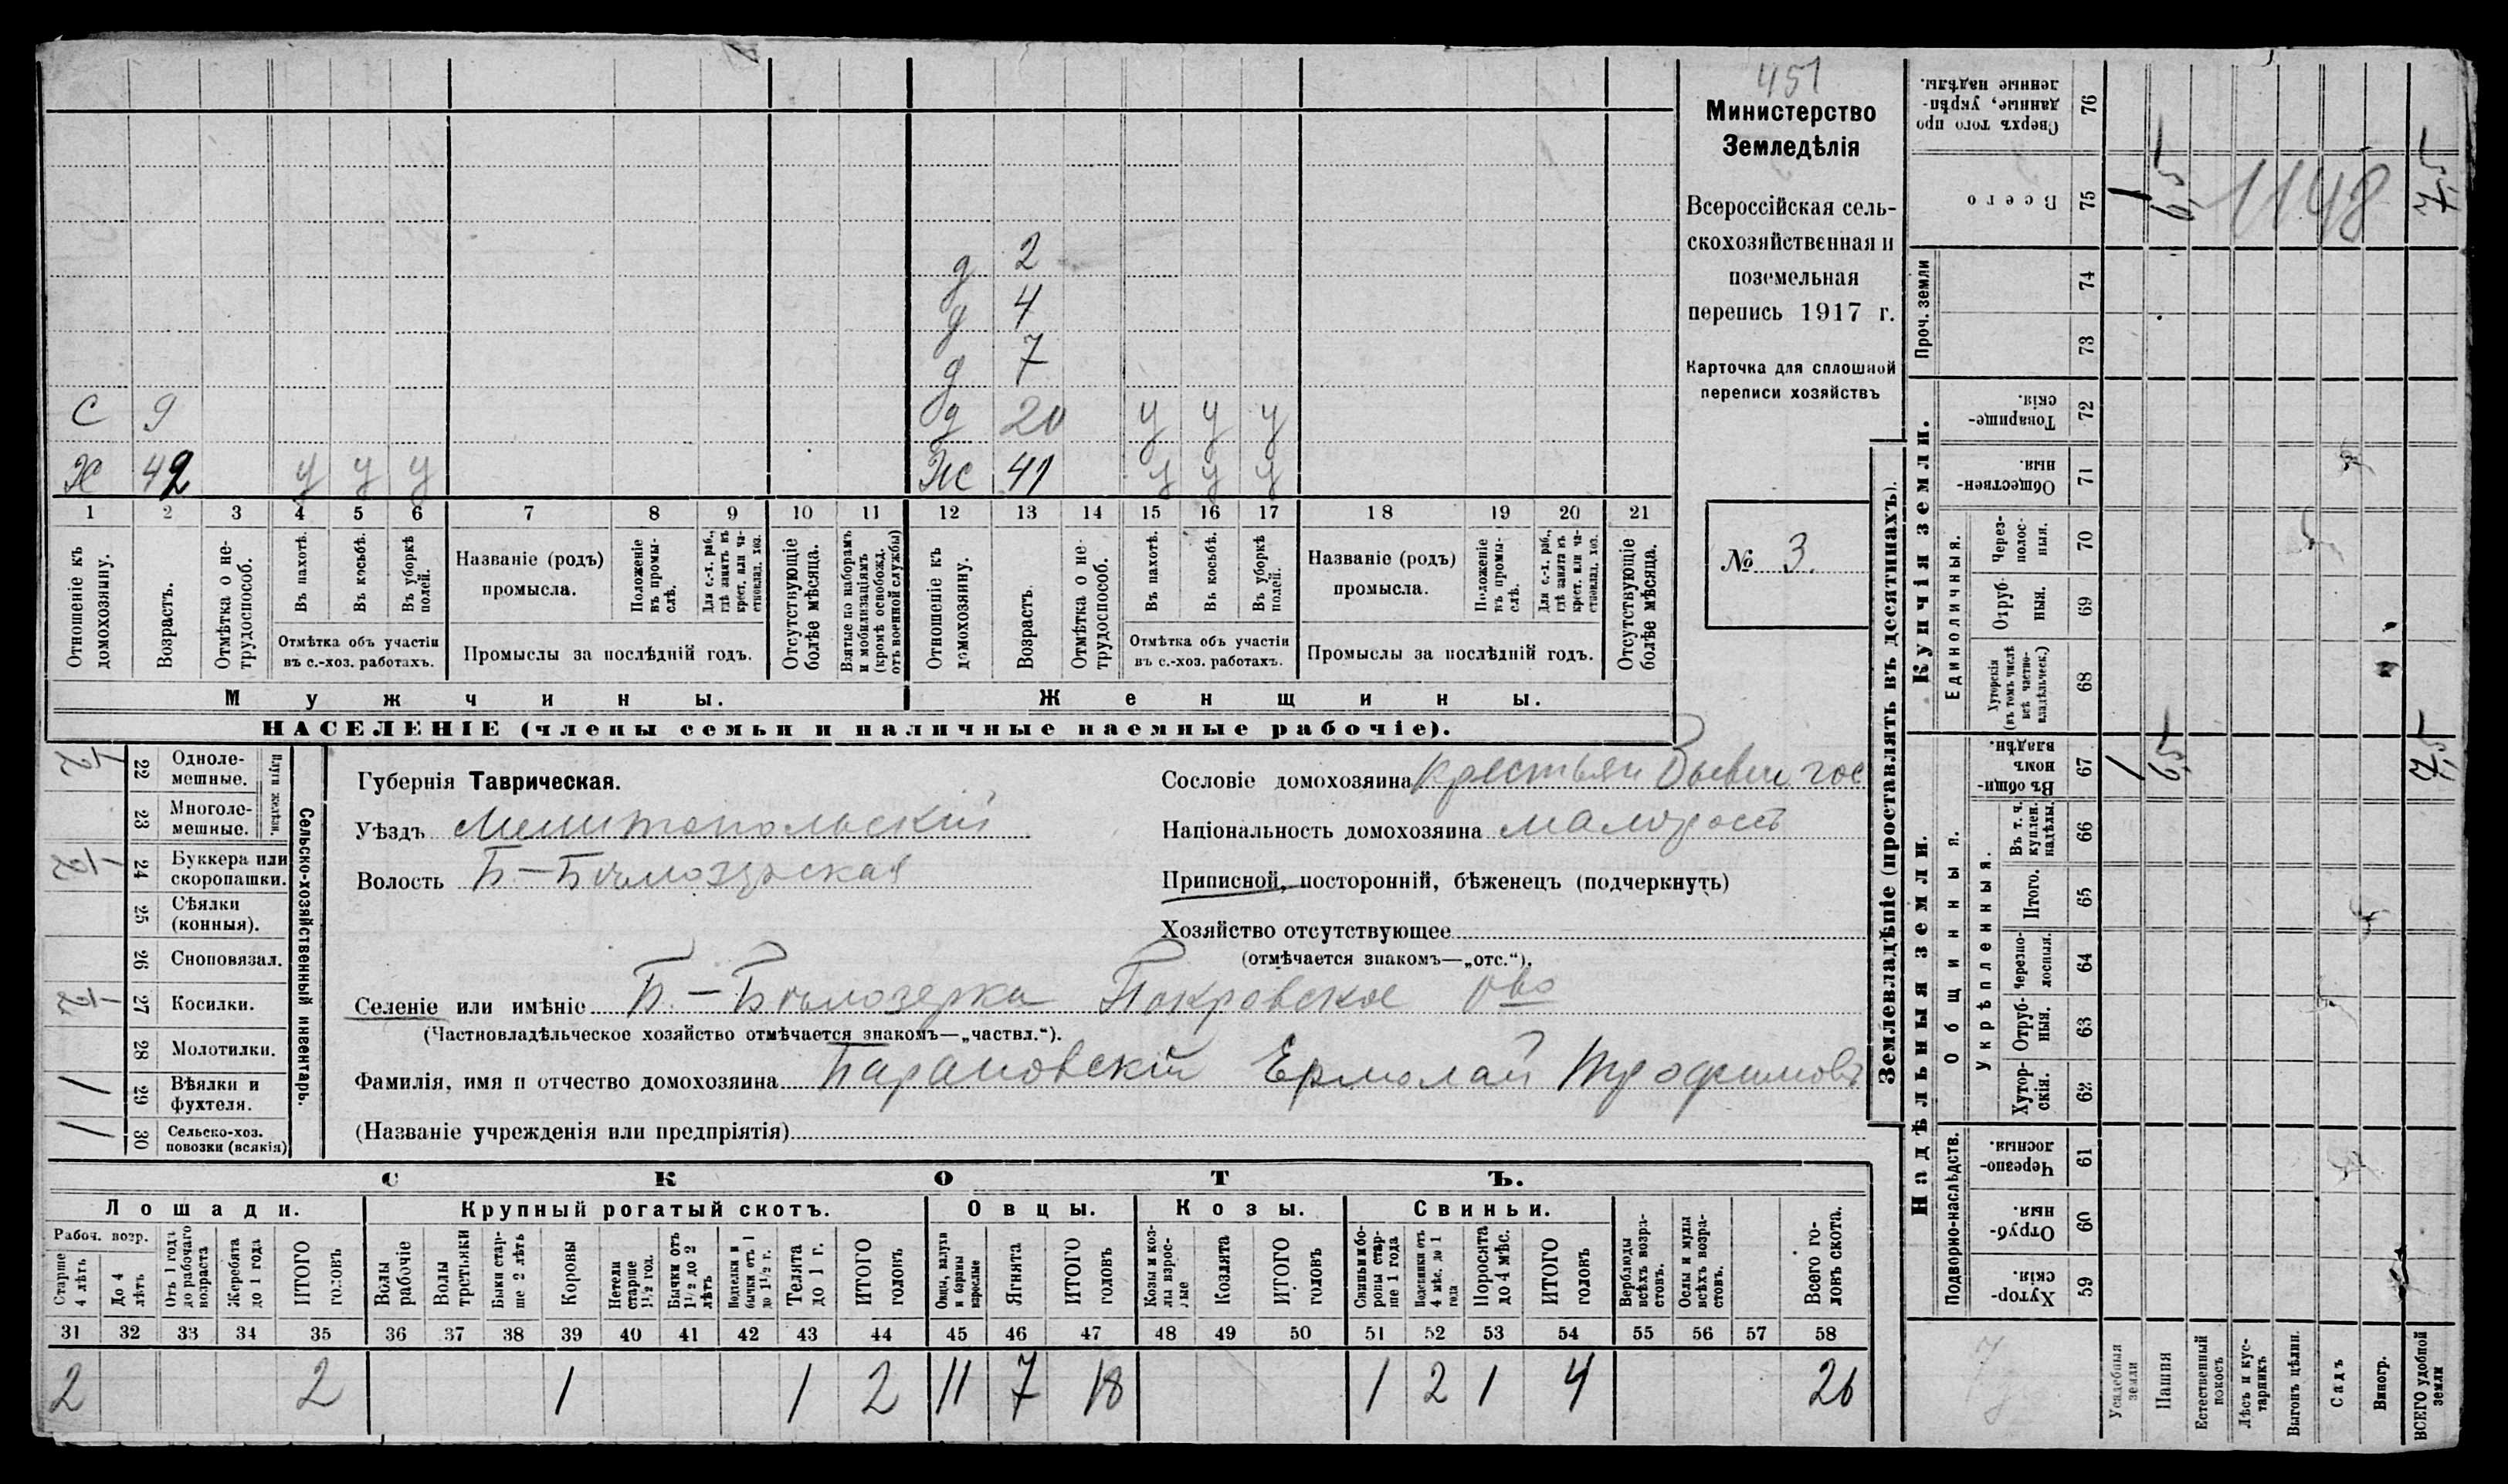 451
Министерство
Земледѣлія
Всероссійская сель-
скохозяйственная и
поземельная
перепись 1917 г.
Карточка для сплошной
переписи хозяйствъ
№ 3.
д 2
д 4
д 7
С 9 д 20 у у у
Х 42 у у у Ж 41 у у у
1 2 3 4 5 6 7 8 9 10 11 12 13 14 15 16 17 18 19 20 21
Отношеніе къ домохозяину.
Возрастъ.
Отмѣтка о не-трудоспособ.
Въ пахотѣ.
Въ косьбѣ.
Въ уборкѣ полей.
Отмѣтка объ участіи
въ с.-хоз. работахъ.
Названіе (родъ)
промысла.
Положеніе въ промы-слѣ.
Для с.-х. раб., гдѣ занятъ въ крест. или ча-стновлад. хоз.
Промыслы за послѣдній годъ.
Отсутствующіе болѣе мѣсяца.
Взятые по наборамъ и мобилизаціямъ (кромѣ освобожд. отъ военной службы)
Отношеніе къ домохозяину.
Возрастъ.
Отмѣтка о не-трудоспособ.
Въ пахотѣ.
Въ косьбѣ.
Въ уборкѣ полей.
Отмѣтка объ участіи
въ с.-хоз. работахъ.
Названіе (родъ)
промысла.
Положеніе въ промы-слѣ.
Для с.-х. раб., гдѣ занятъ въ крест. или ча-стновлад. хоз.
Промыслы за послѣдній годъ.
Отсутствующіе болѣе мѣсяца.
Мужчины. Женщины.
НАСЕЛЕНІЕ (члены семьи и наличные наемные рабочіе).
Сельско-хозяйственный инвентарь.
Плуги желѣзн.
22 Одноле-мешные.
23 Многоле-мешные.
24 Буккера или скоропашки.
25 Сѣялки (конныя).
26 Сноповязал.
27 Косилки.
28 Молотилки.
1 29 Вѣялки и фухтеля.
1 30 Сельско-хоз. повозки (всякія)
Губернія Таврическая.
Уѣздъ Мелитопольскій
Волость Б-Бѣлозерская
Сословіе домохозяина крестьян бывш гос
Національность домохозяина малоросъ
Приписной, посторонній, бѣженецъ (подчеркнуть)
Хозяйство отсутствующее
(отмѣчается знакомъ—„отс.“).
Селеніе или имѣніе Б.-Бѣлозерка Покровское Ово
(Частновладѣльческое хозяйство отмѣчается знакомъ—„частвл.“).
Фамилія, имя и отчество домохозяина Барановскій Ермолай Трофимовъ
(Названіе учрежденія или предпріятія)
СКОТЪ.
Лошади. Крупный рогатый скотъ. Овцы. Козы. Свиньи.
Рабоч. возр.
Старше 4 лѣтъ
До 4 лѣтъ
Отъ 1 года до рабочаго возраста
Жеребята до 1 года
ИТОГО головъ
Волы рабочіе
Волы третьяки
Быки стар-ше 2 лѣтъ
Коровы
Нетели старше 1½ год.
Бычки отъ 1½ до 2 лѣтъ
Подтелки и бычки отъ 1 до 1½ г.
Телята до 1 г.
ИТОГО головъ
Овцы, валухи и бараны взрослые
Ягнята
ИТОГО головъ
Козы и коз-лы взрос-лые
Козлята
ИТОГО головъ
Свиньи и бо-ровы стар-ше 1 года
Подсвинки отъ 4 мѣс. до 1 года
Поросята до 4 мѣс.
ИТОГО головъ
Верблюды всѣхъ возра-стовъ.
Ослы и мулы всѣхъ возра-стовъ.
Всего го-ловъ скота.
31 32 33 34 35 36 37 38 39 40 41 42 43 44 45 46 47 48 49 50 51 52 53 54 55 56 57 58
2 2 1 1 2 11 7 18 1 2 1 4 26
Землевладѣніе (проставлять въ десятинахъ).
Надѣльныя земли. Купчія земли. Проч. земли
Подворно-наслѣдств.
Общинныя.
Укрѣпленныя.
Единоличныя.
Хутор-скія. 59
Отруб-ныя. 60
Черезпо-лосныя. 61
Хутор-скія. 62
Отруб-ныя. 63
Черезпо-лосныя. 64
Итого. 65
Въ т. ч. куплен. надѣлы. 66
Въ общин-номъ владѣн. 67
Хуторскія (въ томъ числѣ всѣ частно-владѣльческ.) 68
Отруб-ныя. 69
Через-полос-ныя. 70
Обществен-ныя. 71
Товарище-скія. 72
73
74
Всего 75
Сверхъ того про данные, укрѣп-ленные надѣлы. 76
Усадебныя земли 1 1
Пашня 6,5 6,5
Естественный покосъ
Лѣсъ и кус-тарникъ
Выгонъ цѣлин.
Садъ
Виногр.
ВСЕГО удобной земли 7,5 7,5
1148